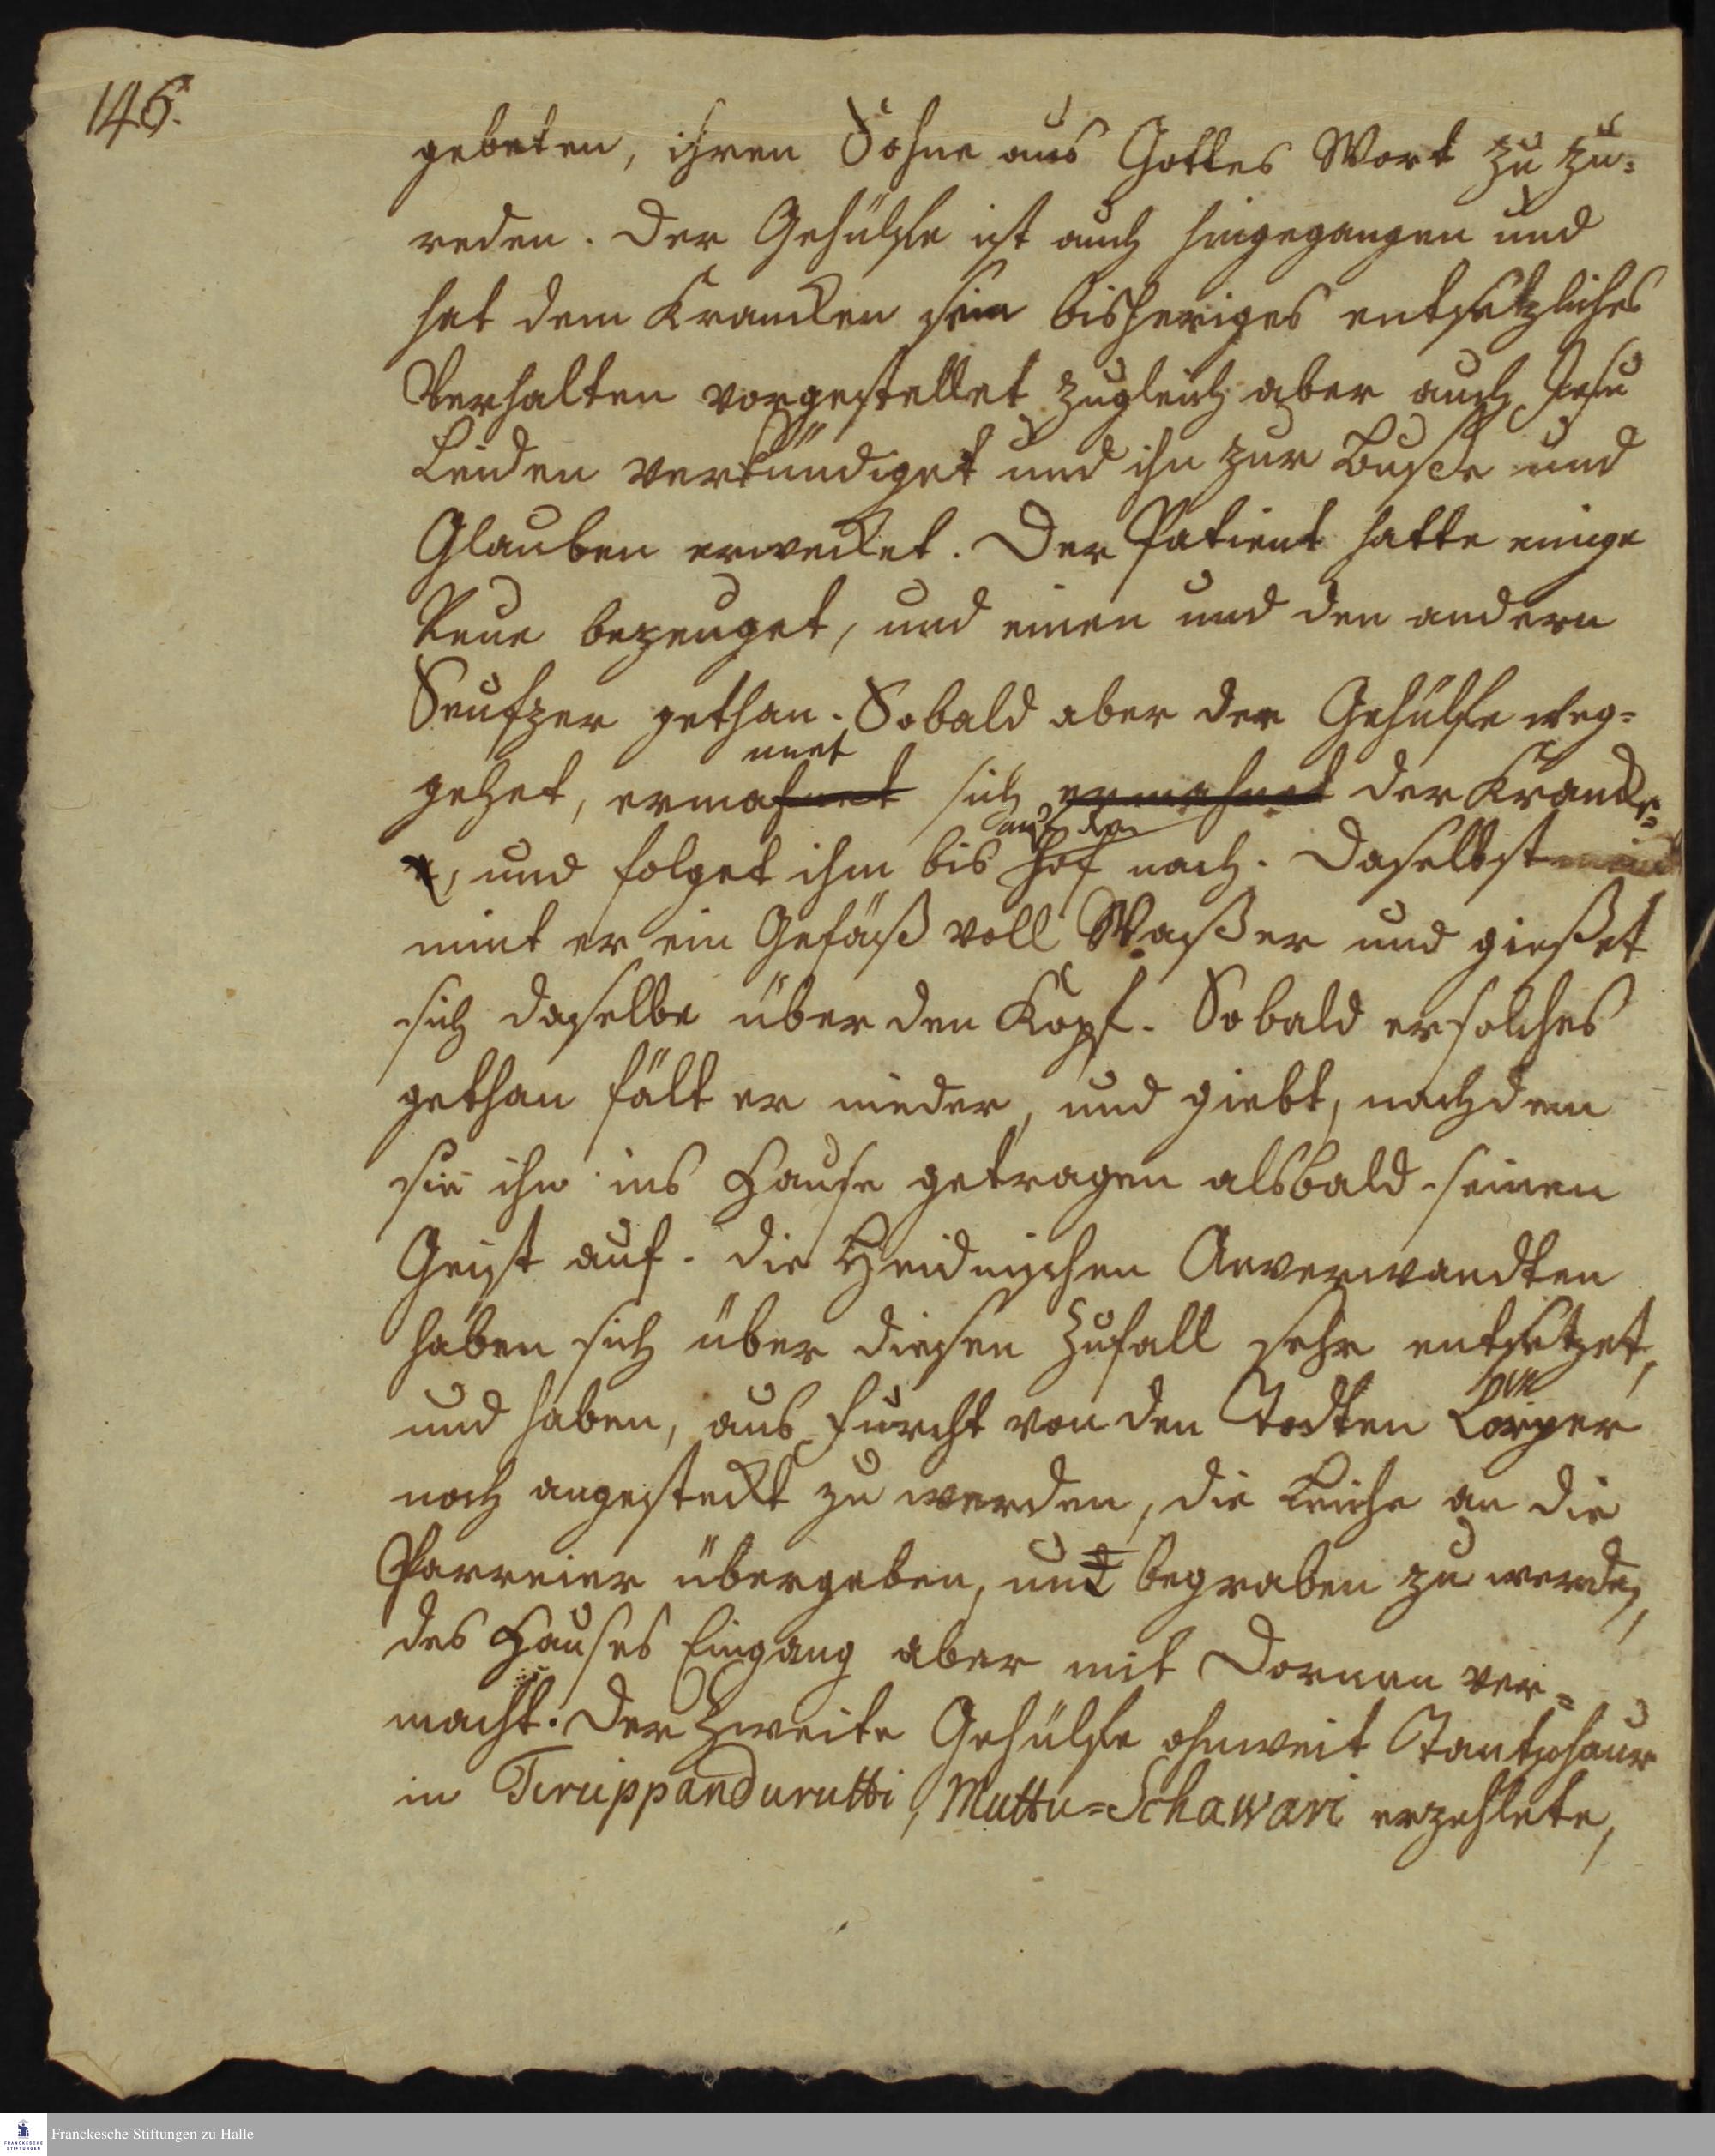 146.
gebeten, ihren Sohne aus Gottes Wort zu zu-
reden. Der Gehülfe ist auch hingegangen und
hat dem Krancken sein bisheriges entsetzliches
Verhalten vorgestellet zugleich aber auch Jesu
Leiden verkündiget und ihn zur Buße und
Glauben erwecket. Der Patient hatte einige
Reue bezeuget, und einen und den andern
Seufzer gethan. Sobald aber der Gehülfe weg-
nnet
gehet, ermahnet sich ermahnet der Krancke
auf den
, und folget ihm bis Hof nach. Daselbst
nimt er ein Gefäß voll Waßer und gießet
sich daselbe über den Kopf. Sobald er solches
gethan fält er nieder, und giebt, nachdem
sie ihn ins Hause getragen alsbald seinen
Geist auf. Die Heidnischen Anverwandten
haben sich über diesen Zufall sehr entsetzet,
und haben, aus Furcht von den Todten Körper
noch angesteckt zu werden, die Leiche an die
Parreier übergeben, und begraben zu werden,
des Hauses Eingang aber mit Dornen ver-
macht. Der Zweite Gehülfe ohnweit Tantschaur
in Tiruppanduruthi, Muttu-Schawari erzehlete,
Franckesche Stiftungen zu Halle
FRANCKESCHE
STIFTUNGEN